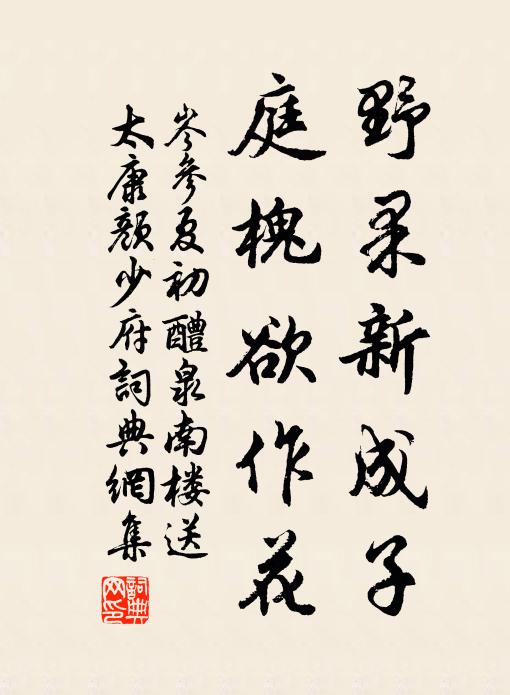 野果新成子
庭槐欲作花
岑參夏初醴泉南楼送
太康顏少府詞典網集
詞典網印